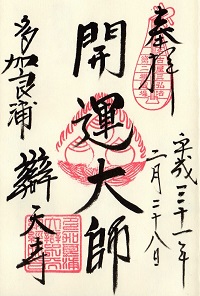 奉拝
開運大師
平成三十一年
二月二十八日
多加良浦
辯天寺